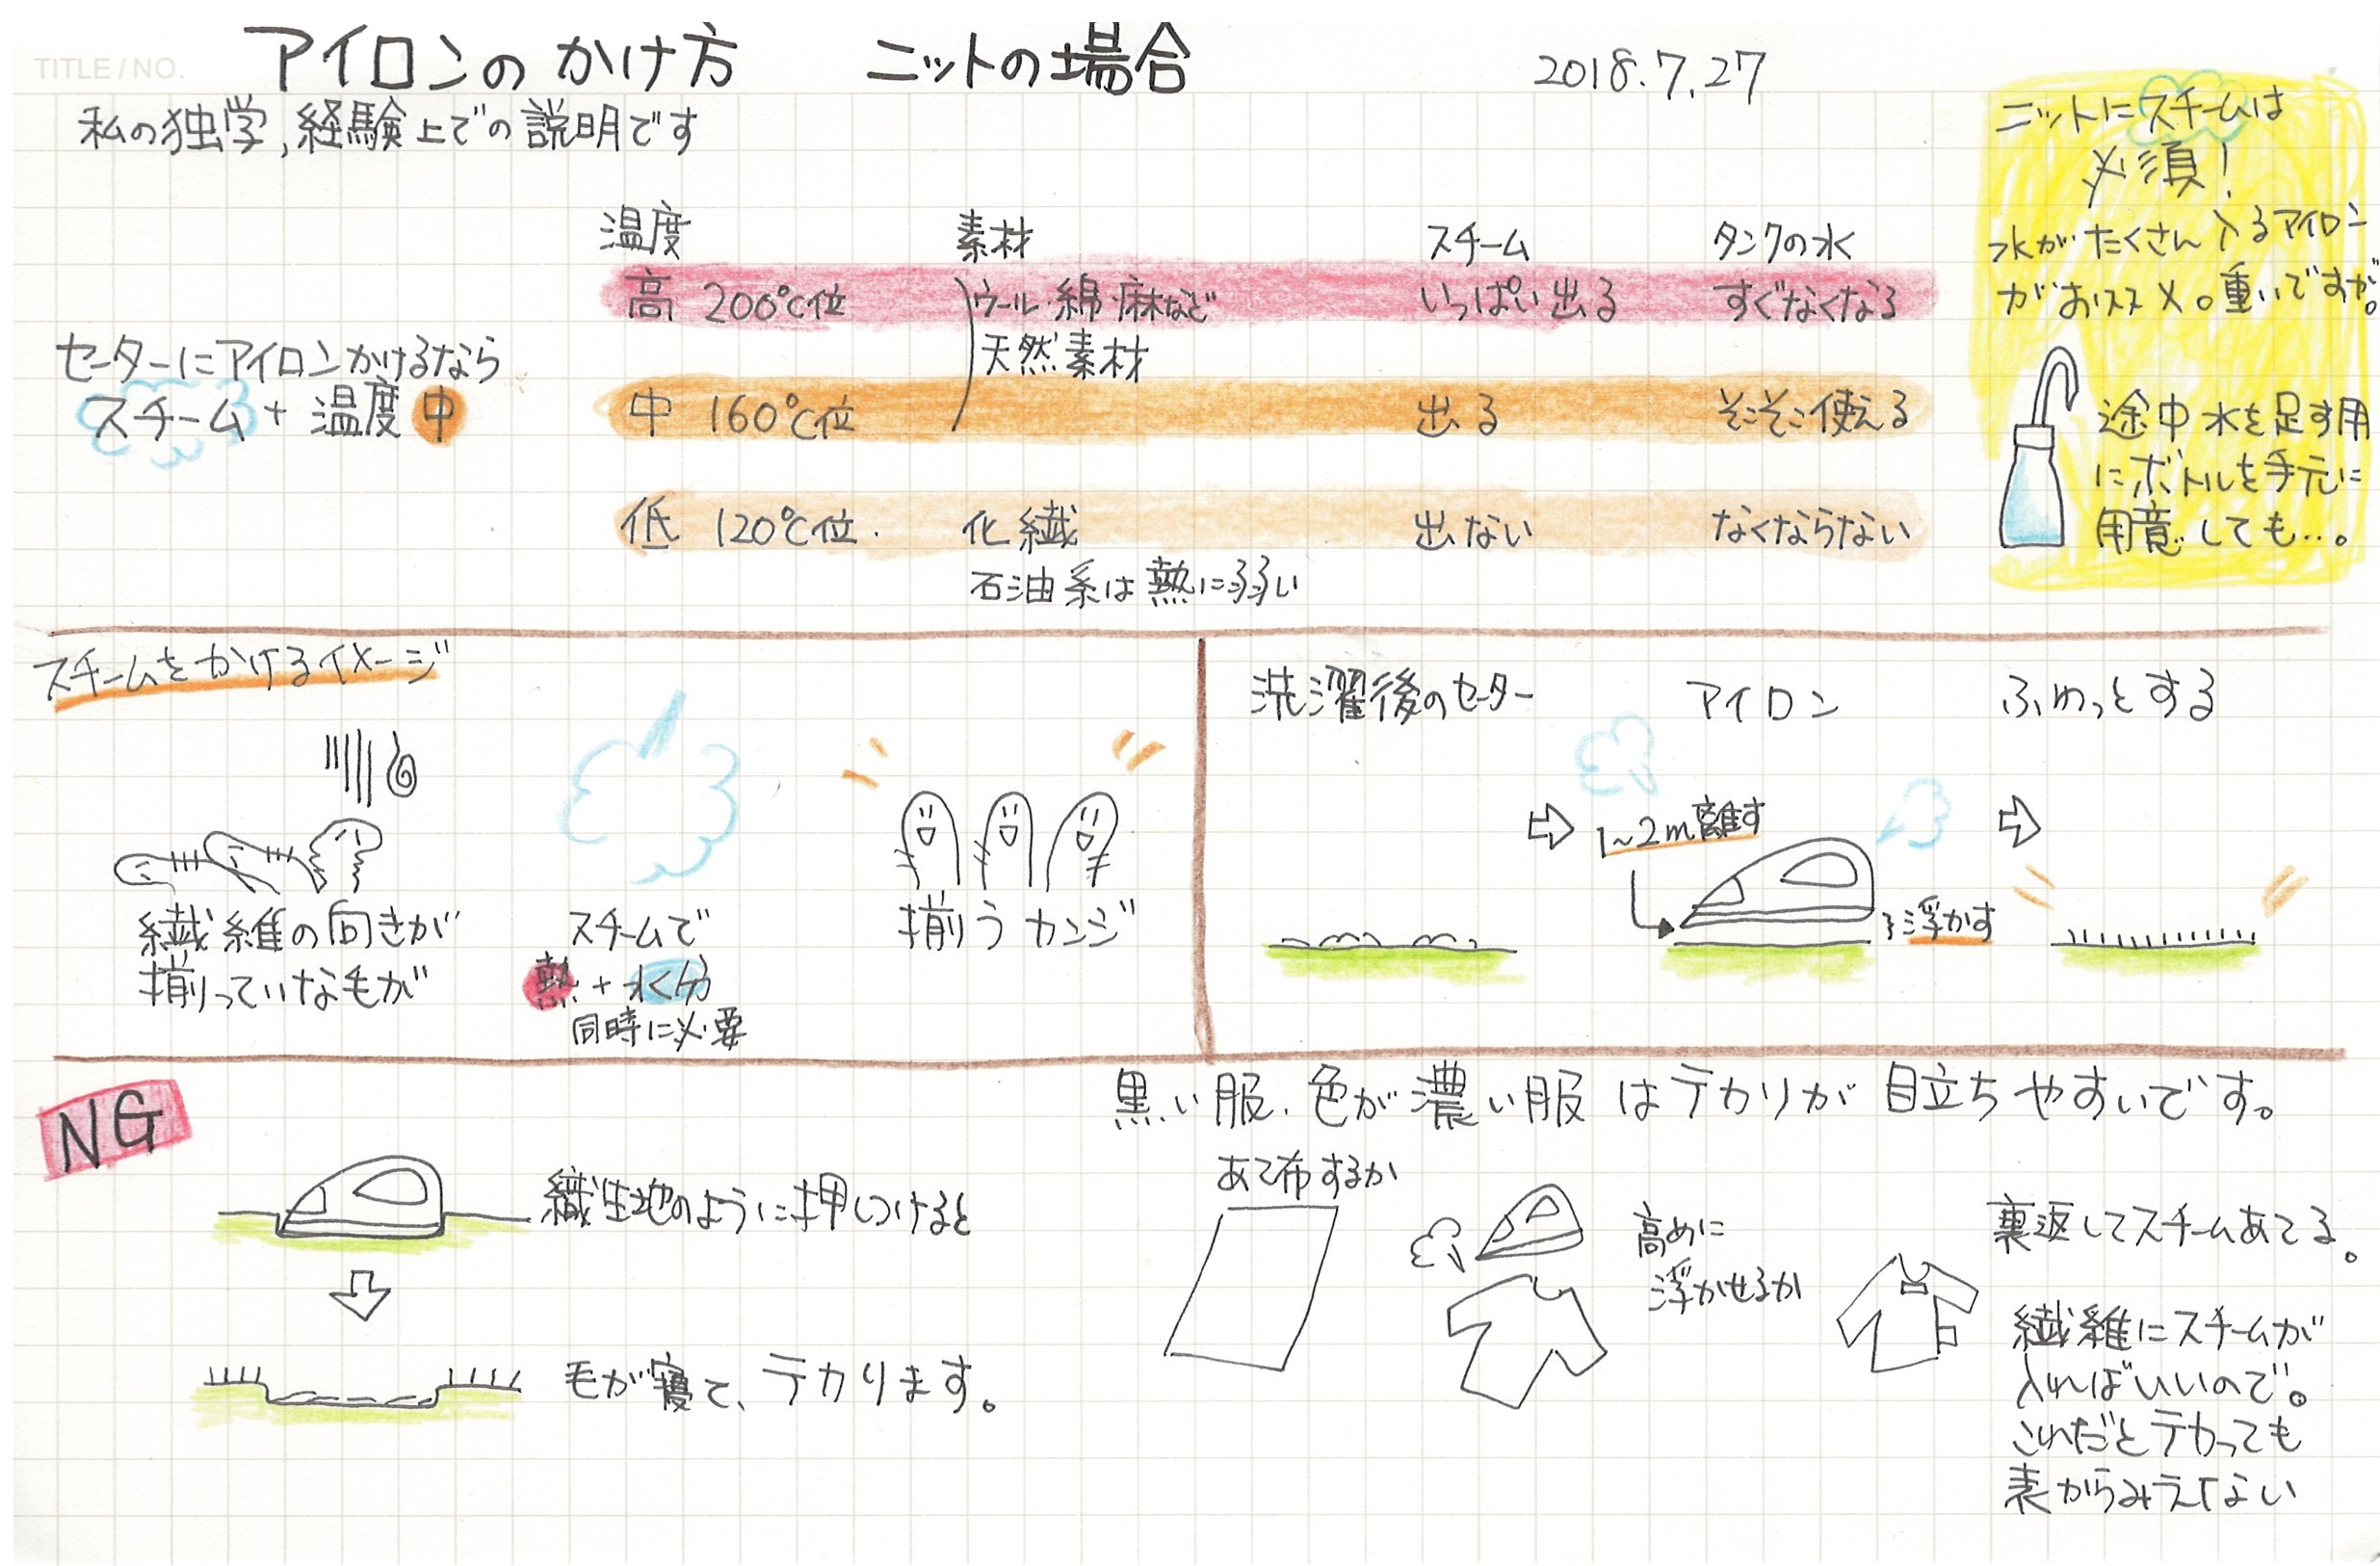 TITLE/NO.
アイロンのかけ方 ニットの場合
2018.7.27
私の独学,経験上での説明です
ニットにスチームは
必須!
水がたくさん入るアイロン
がおススメ。重いですが。
途中水を足す用
にボトルを手元に
用意しても…。
温度 素材 スチーム タンクの水
高 200℃位 ウール・綿・麻など いっぱい出る すぐなくなる
天然素材
中 160℃位 出る そこそこ使える
低 120℃位. 化繊 出ない なくならない
石油系は熱に弱い
セーターにアイロンかけるなら
スチーム + 温度 中
スチームをかけるイメージ
繊維の向きが
揃っていな毛が
スチームで
熱 + 水分
同時に必要
揃うカンジ
洗濯後のセーター アイロン ふわっとする
1~2m離す
浮かす
NG
織生地のように押しつけると
毛が寝て、テカります。
黒い服、色が濃い服はテカリが目立ちやすいです。
あて布するか
高めに
浮かせるか
裏返してスチームあてる。
繊維にスチームが
入ればいいので。
これだとテカっても
表からみえない